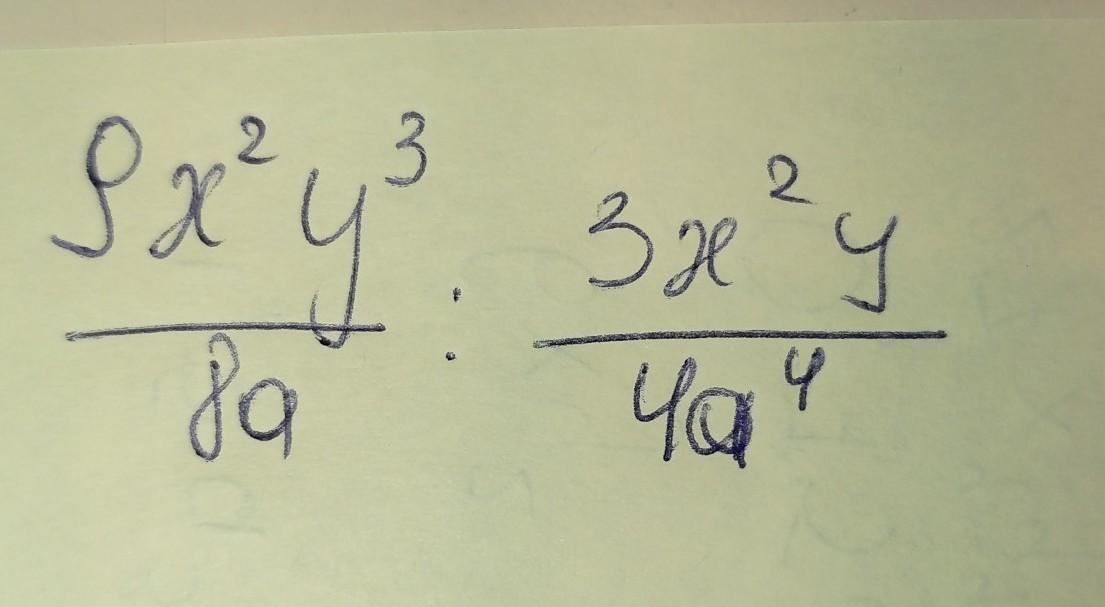 9x²y³/8a : 3x²y/4a⁴